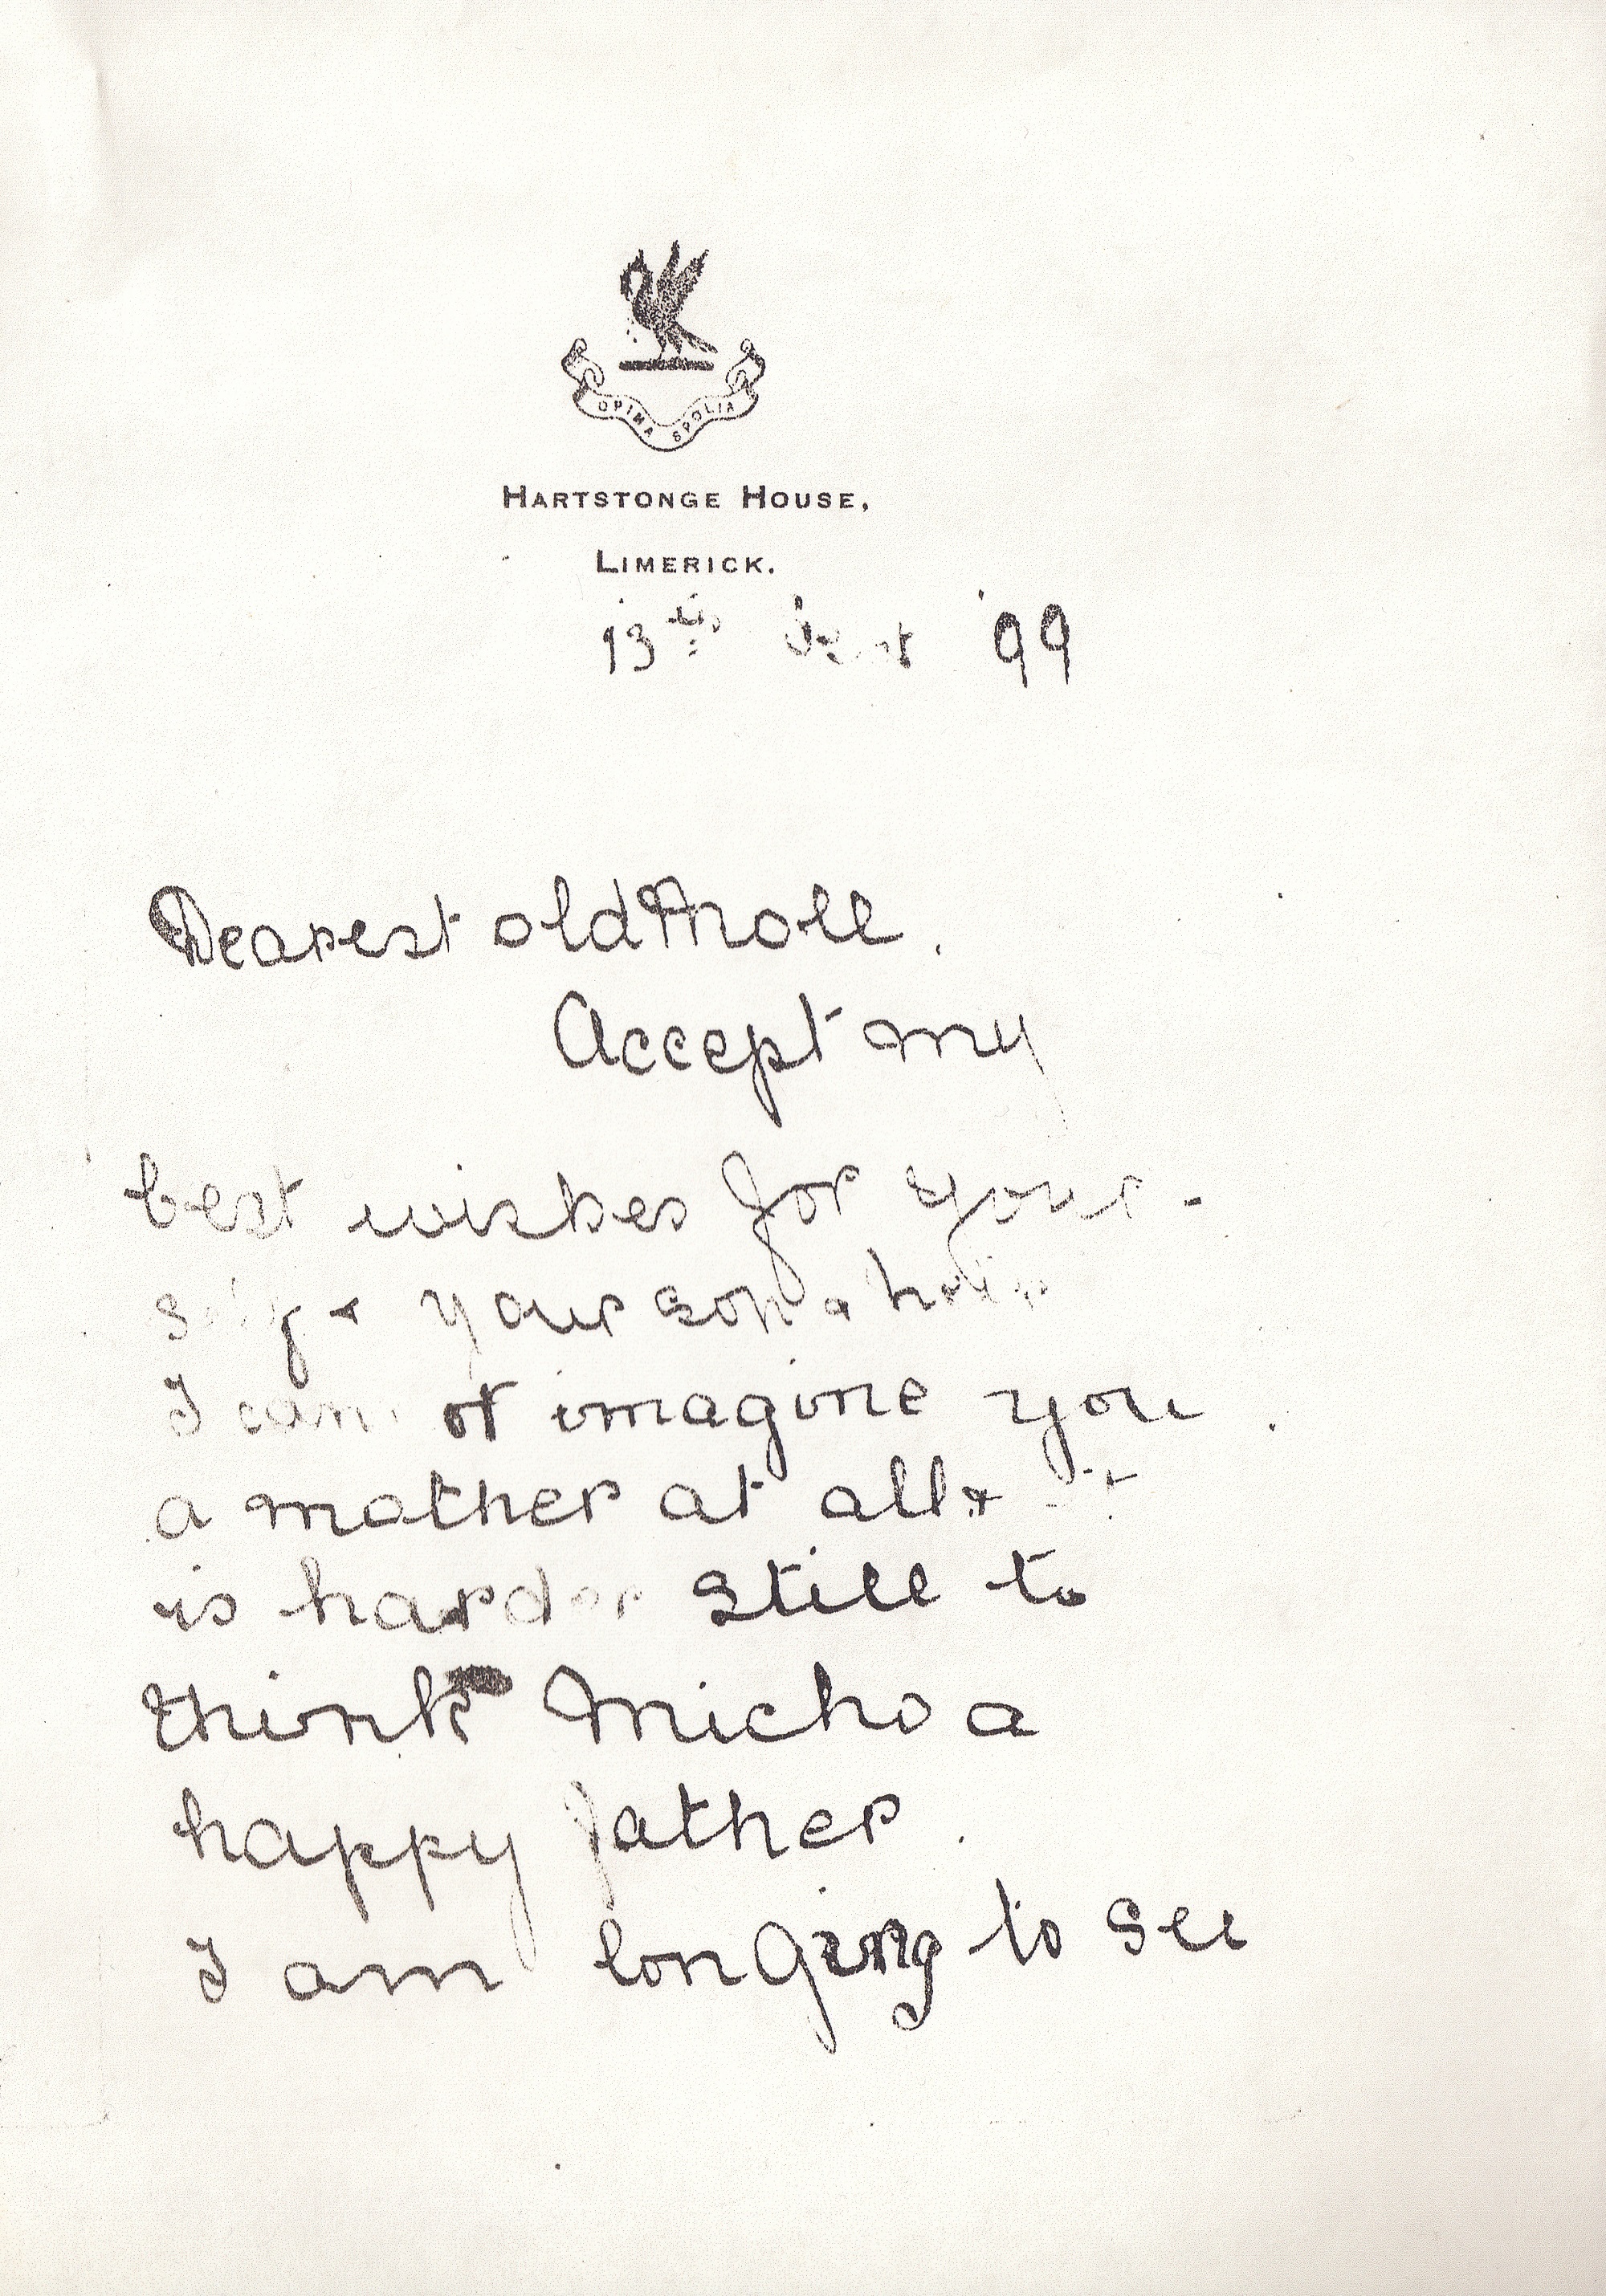 OPIMA SPOLIA
HARTSTONGE HOUSE,
LIMERICK.
13th Sept '99
Dearest old Moll.
Accept my
best wishes for your-
self & your son &
I cannot imagine you
a mother at all & it
is harder still to
think Micho a
happy father.
I am longing to see